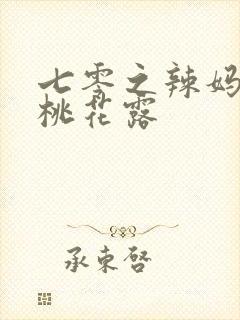 七零之辣妈
桃花露
承东启